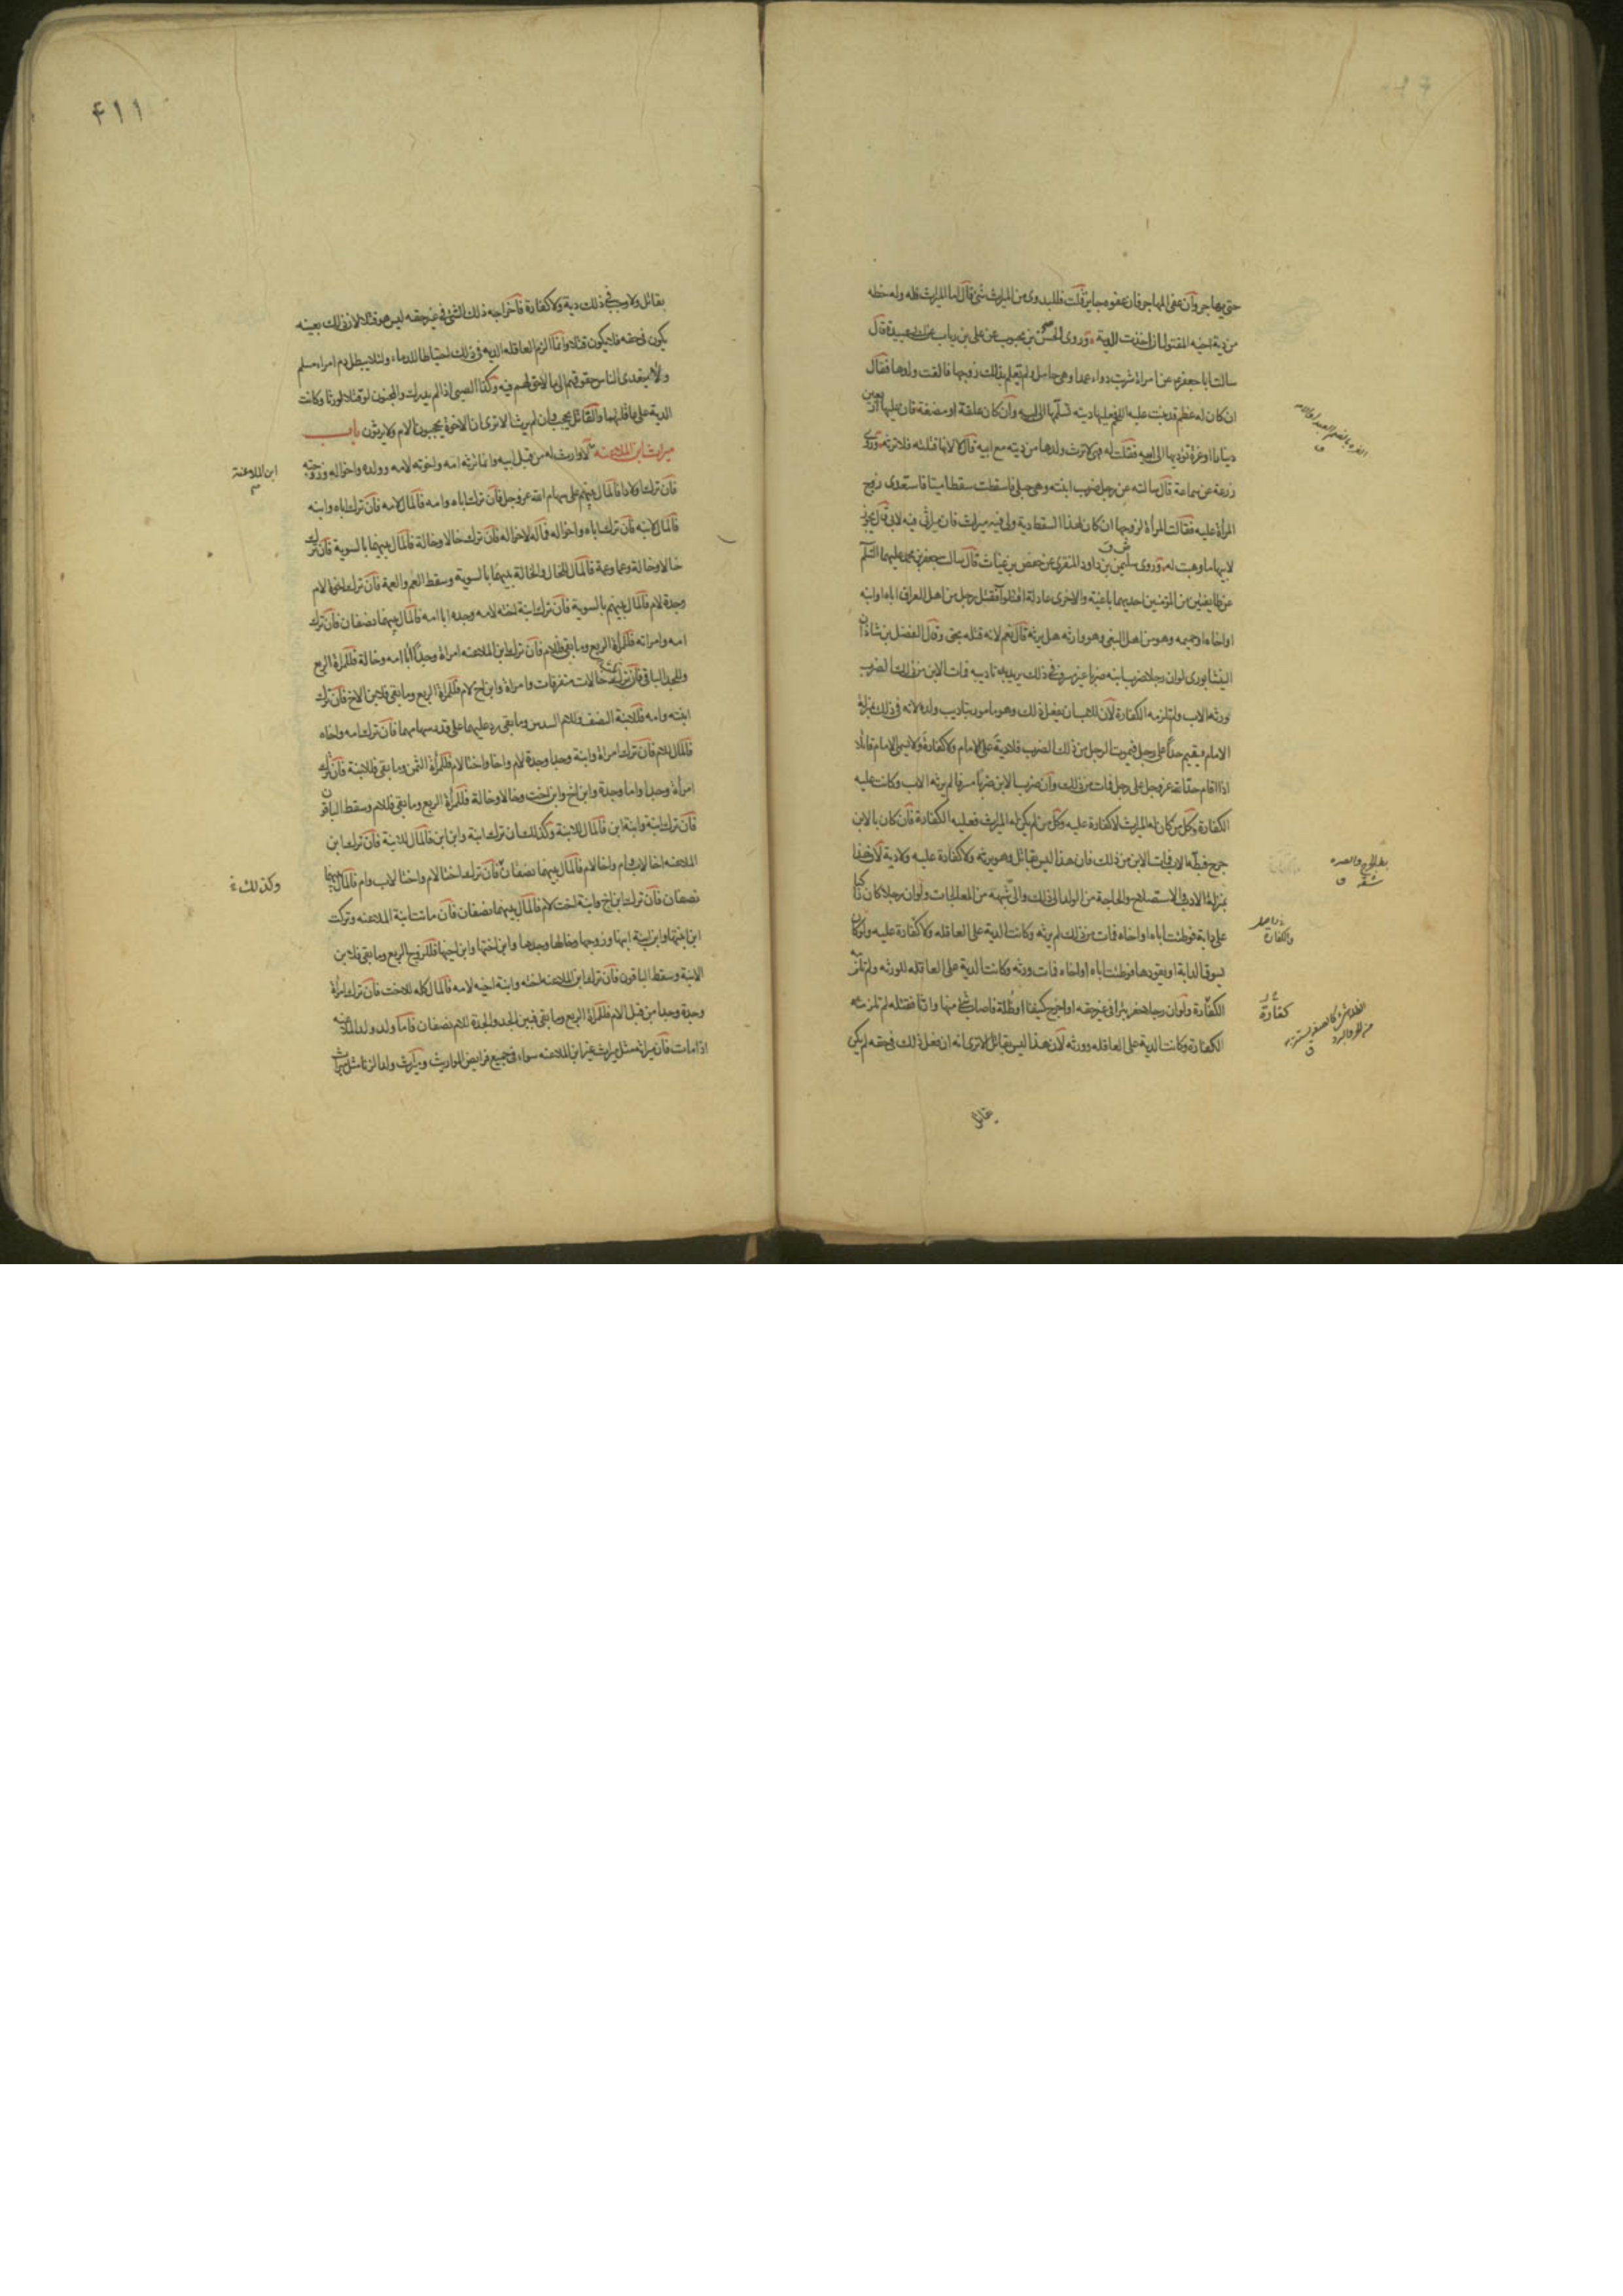 حتى يهاجر وان عفى المهاجر فان عفوه جايز قلت فللبدوى من الميراث شئ قال اما الميراث فله وله حظه
من دية اخيه المقتول ان اخذت الدية وروى الحسن بن محبوب عن على بن رياب عن ابى عبيدة قال
سالت ابا جعفر ع عن امراة شربت دواء عمدا وهى حامل ولم تعلم بذلك زوجها فالقت ولدها فقال
ان كان له عظم قد نبت عليه اللحم عليها دية تسلمها الى ابيه وان كان علقة او مضغة فان عليها اربعين
دينارا او غرة تؤديها الى ابيه فقلت له فهى لا ترث ولدها من ديته مع ابيه قال لا لانها قتلته فلا ترثه وروى
زرعة عن سماعة قال سالته عن رجل ضرب ابنته وهى حبلى فاسقطت سقطا ميتا فاستعدى زوج
المراة عليه فقالت المراة لزوجها ان كان لهذا السقط دية ولى فيه ميراث فان ميراثى فيه لابى قال يجوز
لابيها ما وهبت له وروى سليمن بن داود المنقرى عن حفص بن غياث قال سالت جعفر بن محمد عليهما السلام
عن طايفتين من المؤمنين احديهما باغية والاخرى عادلة اقتتلوا فقتل رجل من اهل العراق اباه او ابنه
او اخاه او حميمه وهو من اهل البغى وهو وارثه هل يرثه قال نعم لانه قتله بحق وقال الفضل بن شاذان
النيشابورى لو ان رجلا ضرب ابنه ضربا غير مسرف فى ذلك يريد به تاديبه فمات الابن من ذلك الضرب
ورثه الاب ولم تلزمه الكفارة لان للاب ان يفعل ذلك وهو مامور بتاديب ولده لانه فى ذلك بمنزلة
الامام يقيم حدا على رجل فيموت الرجل من ذلك الضرب فلا دية على الامام ولا كفارة ولا يسمى الامام قاتلا
اذا اقام حد الله عز وجل على رجل فمات من ذلك وان ضرب الابن ضربا مسرفا لم يرثه الاب وكانت عليه
الكفارة وكل من كان له الميراث لا كفارة عليه وكل من لم يكن له الميراث فعليه الكفارة فان كان بالابن
جرح فبطه الاب فمات الابن من ذلك فان هذا ليس بقاتل وهو يرثه ولا كفارة عليه ولا دية لان هذا
بمنزلة الادب والاستصلاح والحاجة من الولد الى ذلك والى شبهه من المعالجات ولو ان رجلا كان راكبا
على دابة فوطئت اباه او اخاه فمات من ذلك لم يرثه وكانت الدية على العاقله والكفارة عليه ولو كان
يسوق الدابة او يقودها فوطئت اباه او اخاه فمات ورثه وكانت الدية على العاقله للورثه ولم تلزمه
الكفارة ولو ان رجلا حفر بئرا فى غير حقه او اخرج كنيفا او ظلة فاصاب شئ منها وارثا فقتله لم تلزمه
الكفارة وكانت الدية على العاقله وورثه لان هذا ليس بقاتل الا ترى انه ان فعل ذلك فى حقه لم يكن
والكفارة
كفارة
بقاتل
٤١١
بقاتل ولا وجب فى ذلك دية ولا كفارة فاخراجه ذلك الشئ فى غير حقه ليس هو قتلا لان ذلك بعينه
يكون فى حقه فلا يكون قتلا وانما الزم العاقله الدية فى ذلك احتياطا للدماء ولئلا يبطل دم امرا مسلم
ولئلا يتعدى الناس حقوقهم الى ما لا حق لهم فيه وكذا الصبى اذا لم يدرك والمجنون لو قتلا لورثا وكانت
الدية على عاقلتهما والقاتل يحجب وان لم يرث الا ترى ان الاخوة يحجبون الام ولا يرثون باب
ميراث ابن الملاعنه لا وارث له من قبل ابيه وانما ترثه امه واخوته لامه وولده واخواله وزوجته
فان ترك اولادا فالمال بينهم على سهام الله عز وجل فان ترك اباه وامه فالمال لامه فان ترك اباه وابنه
فالمال لابنه فان ترك اباه واخواله فماله لاخواله فان ترك خالا وخالة فالمال بينهما بالسوية فان ترك
خالا وخالة وعما وعمة فالمال للخال والخالة بينهما بالسوية وسقط العم والعمة فان ترك اخوة لام
وجدة لام فالمال بينهم بالسوية فان ترك ابنة اخته لامه وجده ابا امه فالمال بينهما نصفان فان ترك
امه وامراته فللمراة الربع وما بقى فللام فان ترك ابن الملاعنه امراة وجدا ابا امه وخالة فللمراة الربع
وللجد الباقى فان ترك ثلث خالات متفرقات وامراة وابن اخ لام فللمراة الربع وما بقى فلابن الاخ فان ترك
ابنته وامه فللابنة النصف وللام السدس وما بقى رد عليهما على قدر سهامهما فان ترك امه واخاه
فالمال للام فان ترك امراة وابنة وجدا وجدة لام واخا واختا لام فللمراة الثمن وما بقى فللابنة فان ترك
امراة وجدا واما وجدة وابن اخ وابن اخت وخالا وخالة فللمراة الربع وما بقى فللام وسقط الباقون
فان ترك ابنة وابنة ابن فالمال للابنة وكذلك ان ترك ابنة وابن ابن فالمال للابنة فان ترك ابن
الملاعنه اخا لاب وام واخا لام فالمال بينهما نصفان فان ترك اختا لام واختا لاب وام فالمال بينهما
نصفان فان ترك ابن اخ وابنة اخت لام فالمال بينهما نصفان فان ماتت ابنة الملاعنه وتركت
ابن ابنتها وابن ابنة ابنها وزوجها وخالها وجدها وابن اختها وابن اخيها فللزوج الربع وما بقى فلابن
الابنة وسقط الباقون فان ترك ابن الملاعنه اخته وابنة اخيه لامه فالمال كله للاخت فان ترك امراة
وجدة وجدا من قبل الام فللمراة الربع وما بقى فبين الجد والجدة للام نصفان فاما ولد ولد الملاعنه
اذا مات فان ميراثه مثل ميراث غير ابن الملاعنه سواء فى جميع فرايض المواريث وميراث ولد الزنا مثل ميراث
ابن الملاعنة
وكذلك